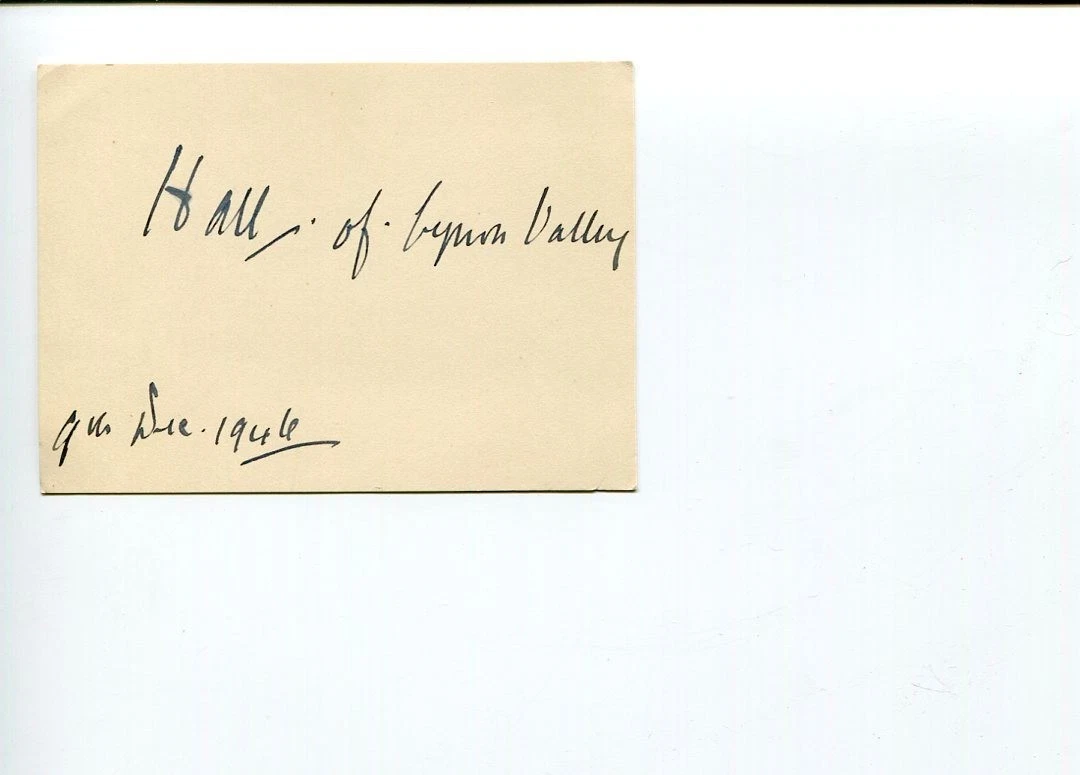 Hall · of · Cynon Valley
9th Dec. 1946